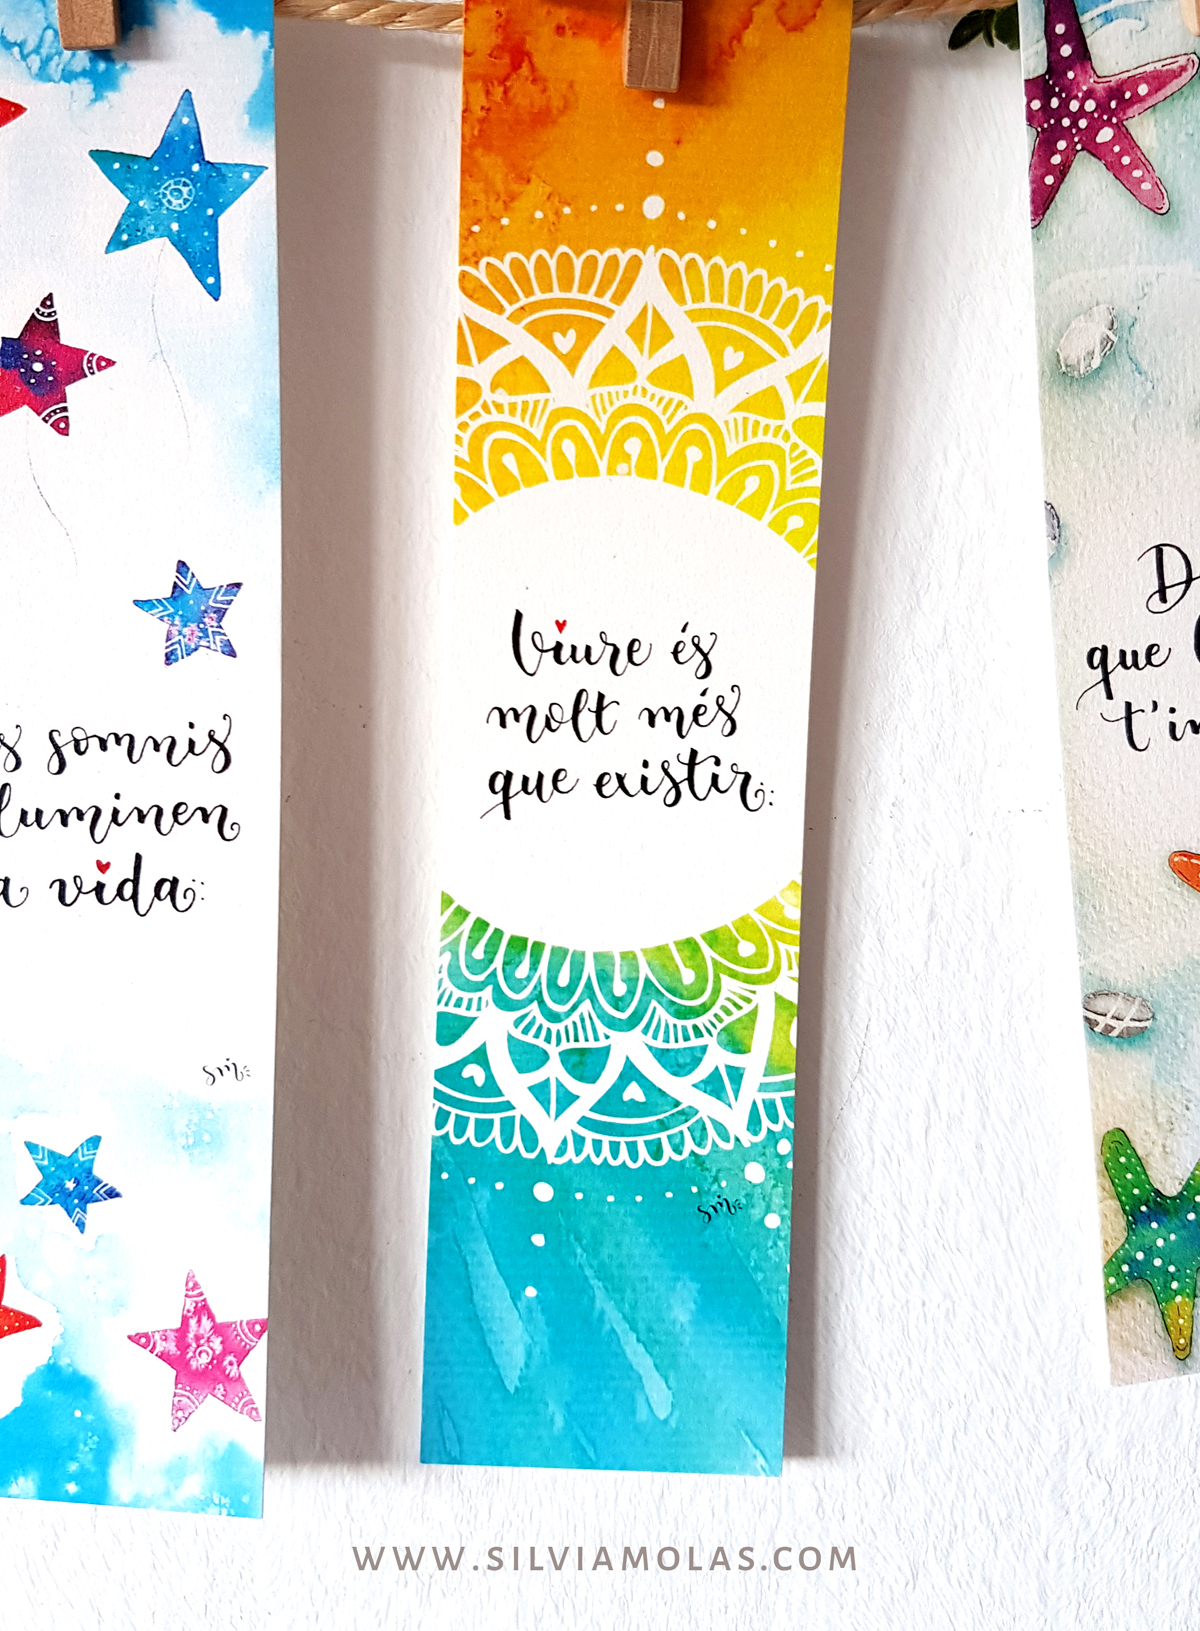 somnis
luminen
a vida
sm
Viure és
molt més
que existir
sm
D
que
t'in
WWW.SILVIAMOLAS.COM